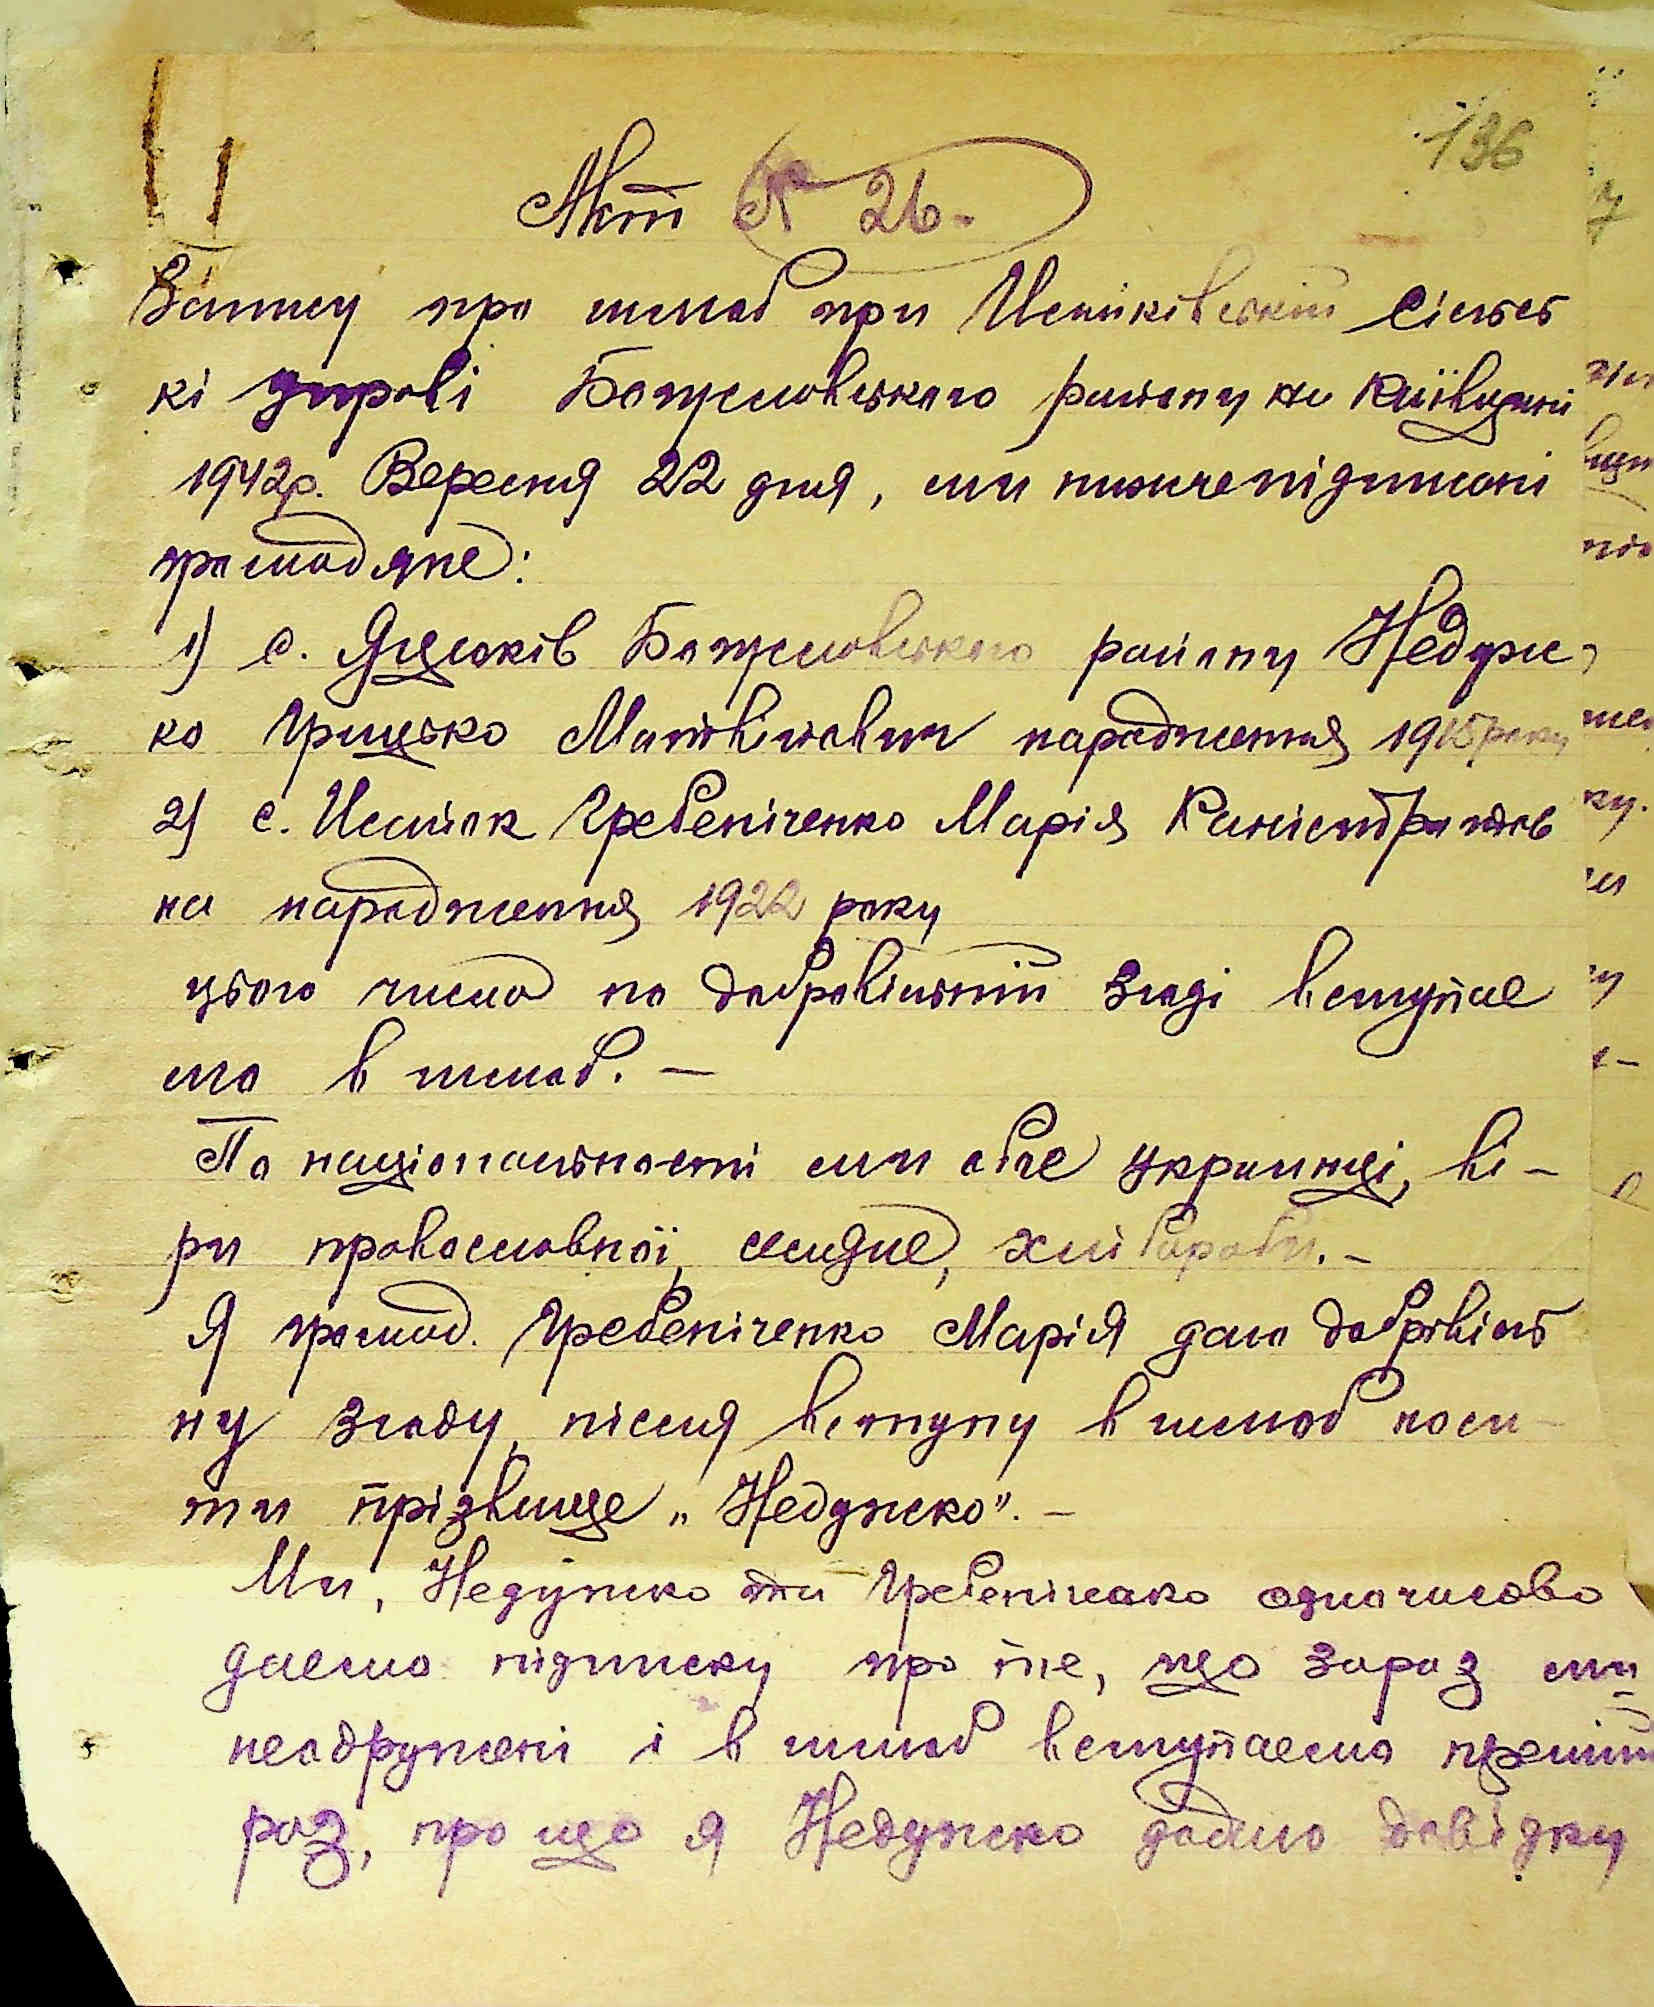 136
Акт № 26-
Запису про шлюб при Ісайківській сільсь
кі управі Богуславського району на Київщині
1942р. Вересня 22 дня, ми нижчепідписані
громадяне:
1) с. Яцюків Богуславського району Недуж-
ко Грицько Матвійович народження 1915 року
2) с. Ісайок Гребеніченко Марія Каністратов
на народження 1922 року
цього числа по добровільній згоді вступає
мо в шлюб. –
По національності ми обоє українці, ві-
ри православної, селяне, хлібороби. –
Я громад. Гребеніченко Марія даю добрвіль
ну згоду, після вступу в шлюб носи-
ти прізвище „Недужко". –
Ми, Недужко та Гребеніченко одночасово
даємо підписку про те, що зараз ми
неодружені і в шлюб вступаємо
раз, про що я Недужко довідку